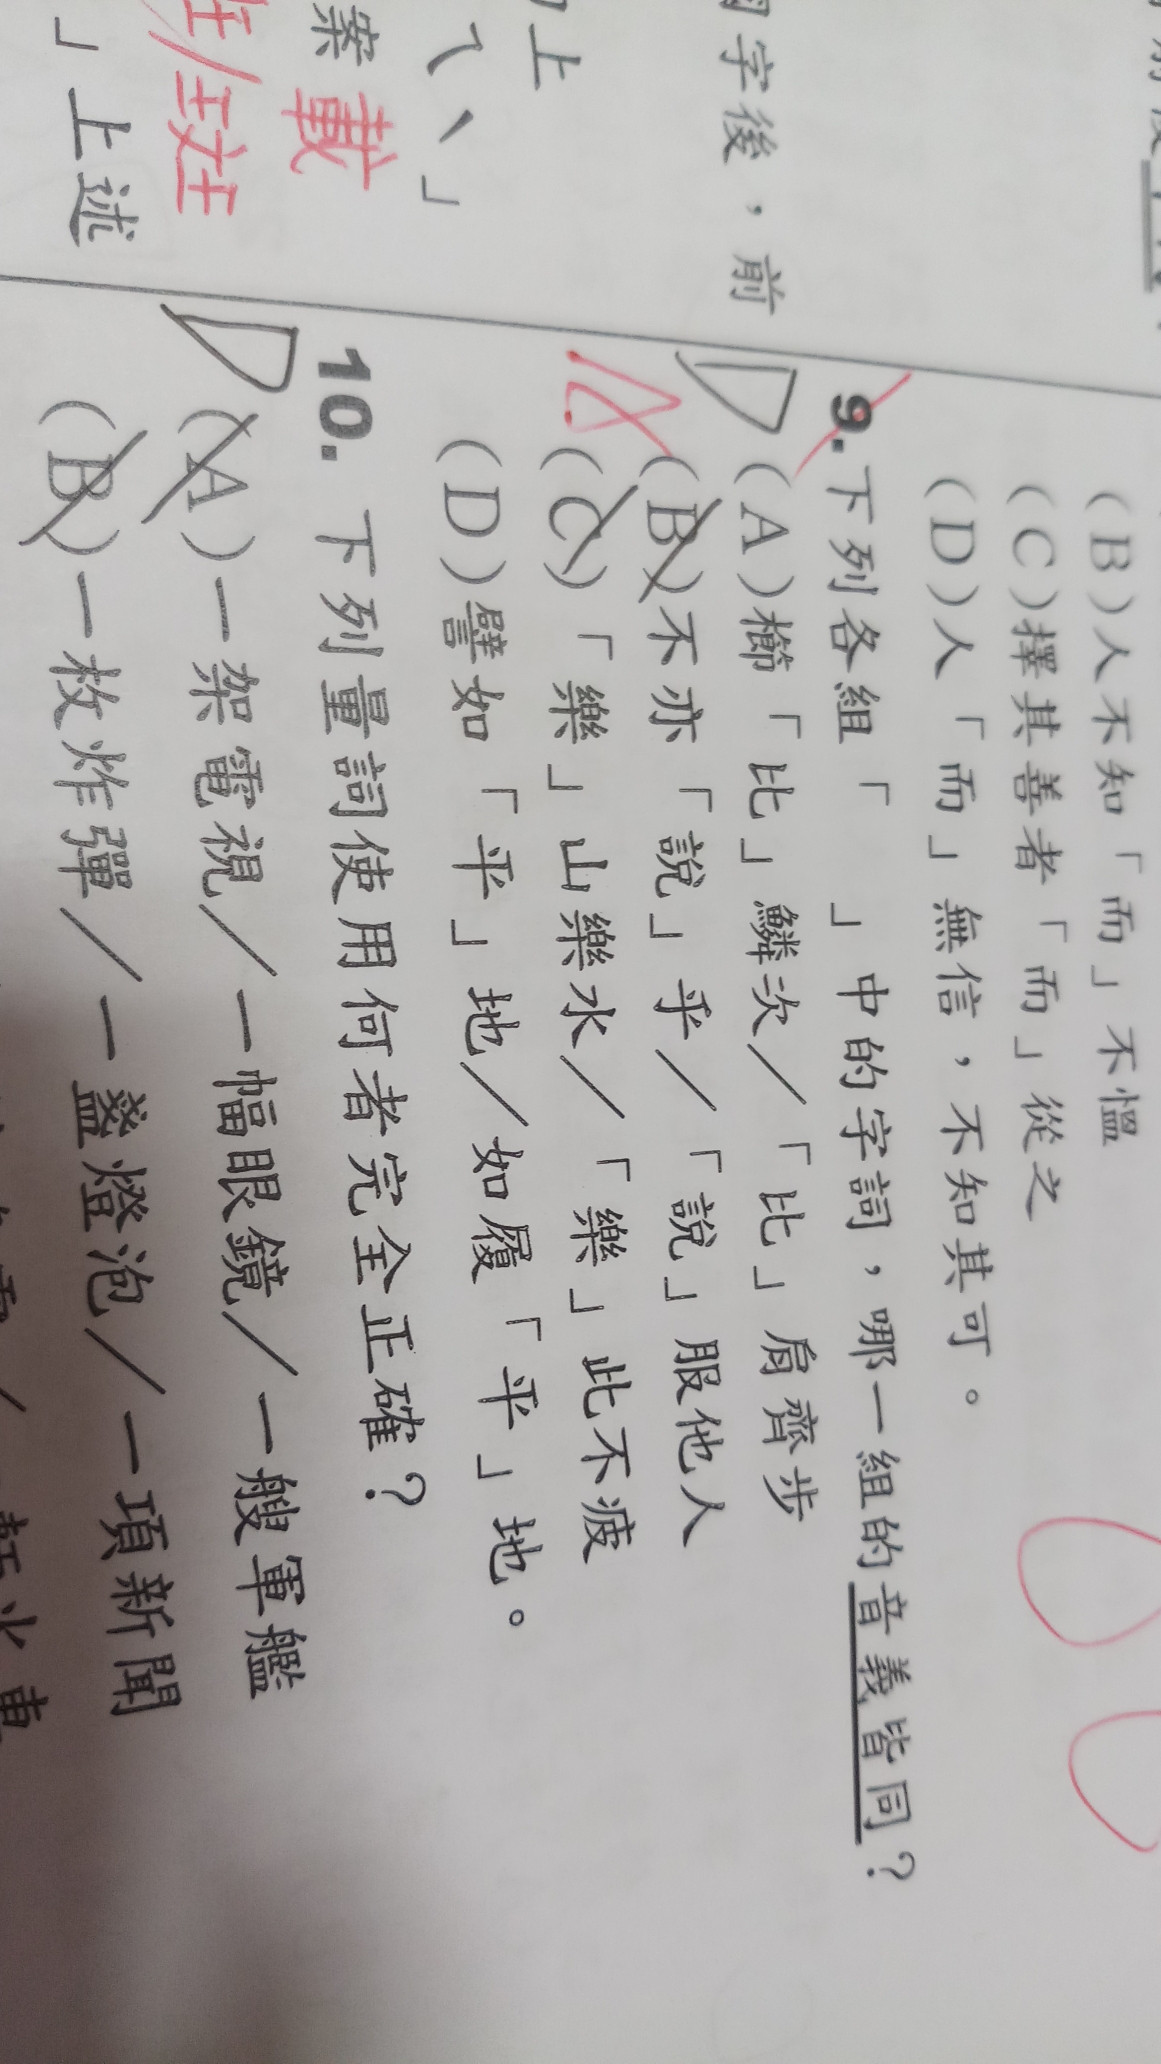 (B)人不知「而」不慍
(C)擇其善者「而」從之
(D)人「而」無信，不知其可。
9.下列各組「　」中的字詞，哪一組的音義皆同？
D
A
(A)櫛「比」鱗次／「比」肩齊步
(B)不亦「說」乎／「說」服他人
(C)「樂」山樂水／「樂」此不疲
(D)譬如「平」地／如履「平」地。
10.下列量詞使用何者完全正確？
D
(A)一架電視／一幅眼鏡／一艘軍艦
(B)一枚炸彈／一盞燈泡／一項新聞
字後，前
上
ㄟ、」
案 載
」上述